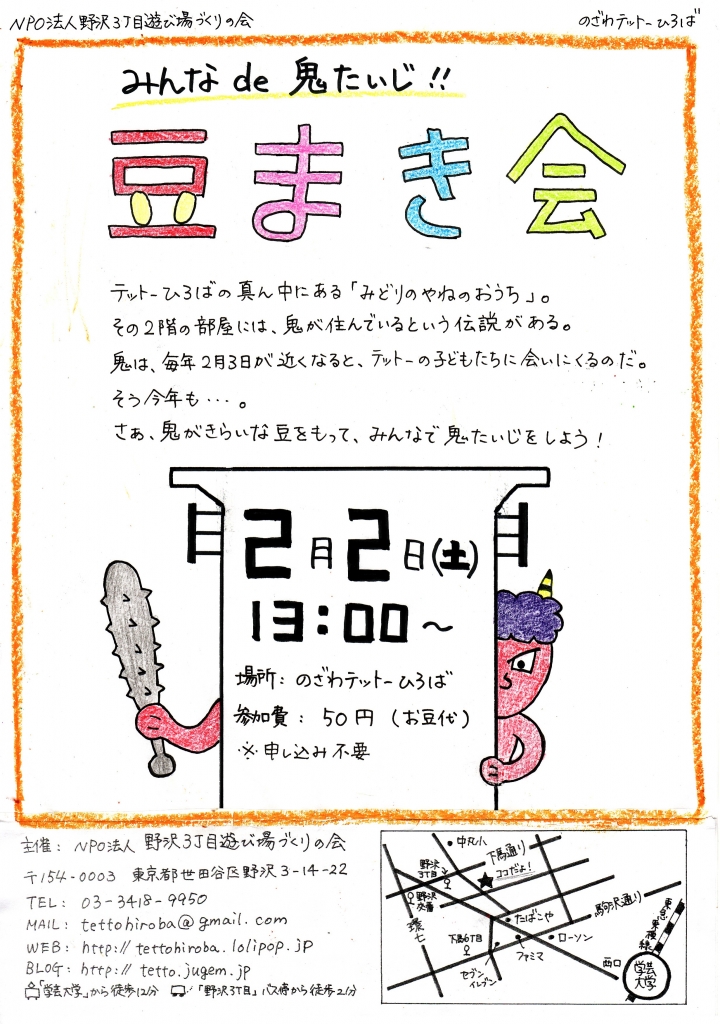 NPO法人野沢3丁目遊び場づくりの会
のざわテットーひろば
みんな de 鬼たいじ!!
豆まき会
テットーひろばの真ん中にある「みどりのやねのおうち」。
その2階の部屋には、鬼が住んでいるという伝説がある。
鬼は、毎年2月3日が近くなると、テットーの子どもたちに会いにくるのだ。
そう今年も・・・。
さぁ、鬼がきらいな豆をもって、みんなで鬼たいじをしよう!
2月2日(土)
13:00~
場所: のざわテットーひろば
参加費: 50円 (お豆代)
※申し込み不要
主催: NPO法人 野沢3丁目遊び場づくりの会
〒154-0003 東京都世田谷区野沢3-14-22
TEL: 03-3418-9950
MAIL: tettohiroba@gmail.com
WEB: http://tettohiroba.lolipop.jp
BLOG: http://tetto.jugem.jp
「学芸大学」から徒歩12分 「野沢3丁目」バス停から徒歩2分
中丸小
下馬通り
野沢3丁目
ココだよ!
野沢交番
駒沢通り
たばこや
環七
下馬6丁目
ローソン
ファミマ
セブンイレブン
西口
学芸大学
東急東横線